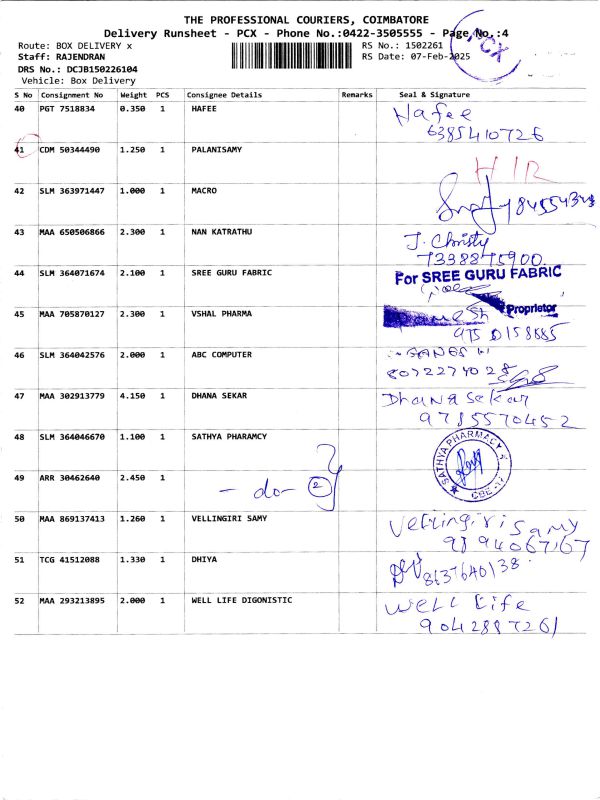 THE PROFESSIONAL COURIERS, COIMBATORE
Delivery Runsheet - PCX - Phone No.:0422-3505555 - Page No.:4
PCX
Route: BOX DELIVERY x
RS No.: 1502261
Staff: RAJENDRAN
RS Date: 07-Feb-2025
DRS No.: DCJB150226104
Vehicle: Box Delivery
S No Consignment No Weight PCS Consignee Details Remarks Seal & Signature
40 PGT 7518834 0.350 1 HAFEE Hafee
6385410726
41 CDM 50344490 1.250 1 PALANISAMY HIR
42 SLM 363971447 1.000 1 MACRO
43 MAA 650506866 2.300 1 NAN KATRATHU J. Christy
7338875900
44 SLM 364071674 2.100 1 SREE GURU FABRIC For SREE GURU FABRIC
Proprietor
45 MAA 705870127 2.300 1 VSHAL PHARMA
46 SLM 364042576 2.000 1 ABC COMPUTER
8072274028
47 MAA 302913779 4.150 1 DHANA SEKAR Dhana sekar
9785570452
48 SLM 364046670 1.100 1 SATHYA PHARAMCY SATHYA PHARMACY
49 ARR 30462640 2.450 1 - do - 2
50 MAA 869137413 1.260 1 VELLINGIRI SAMY Vellingiri Samy
9894067167
51 TCG 41512088 1.330 1 DHIYA 8637640138
52 MAA 293213895 2.000 1 WELL LIFE DIGONISTIC Well Life
9042887261